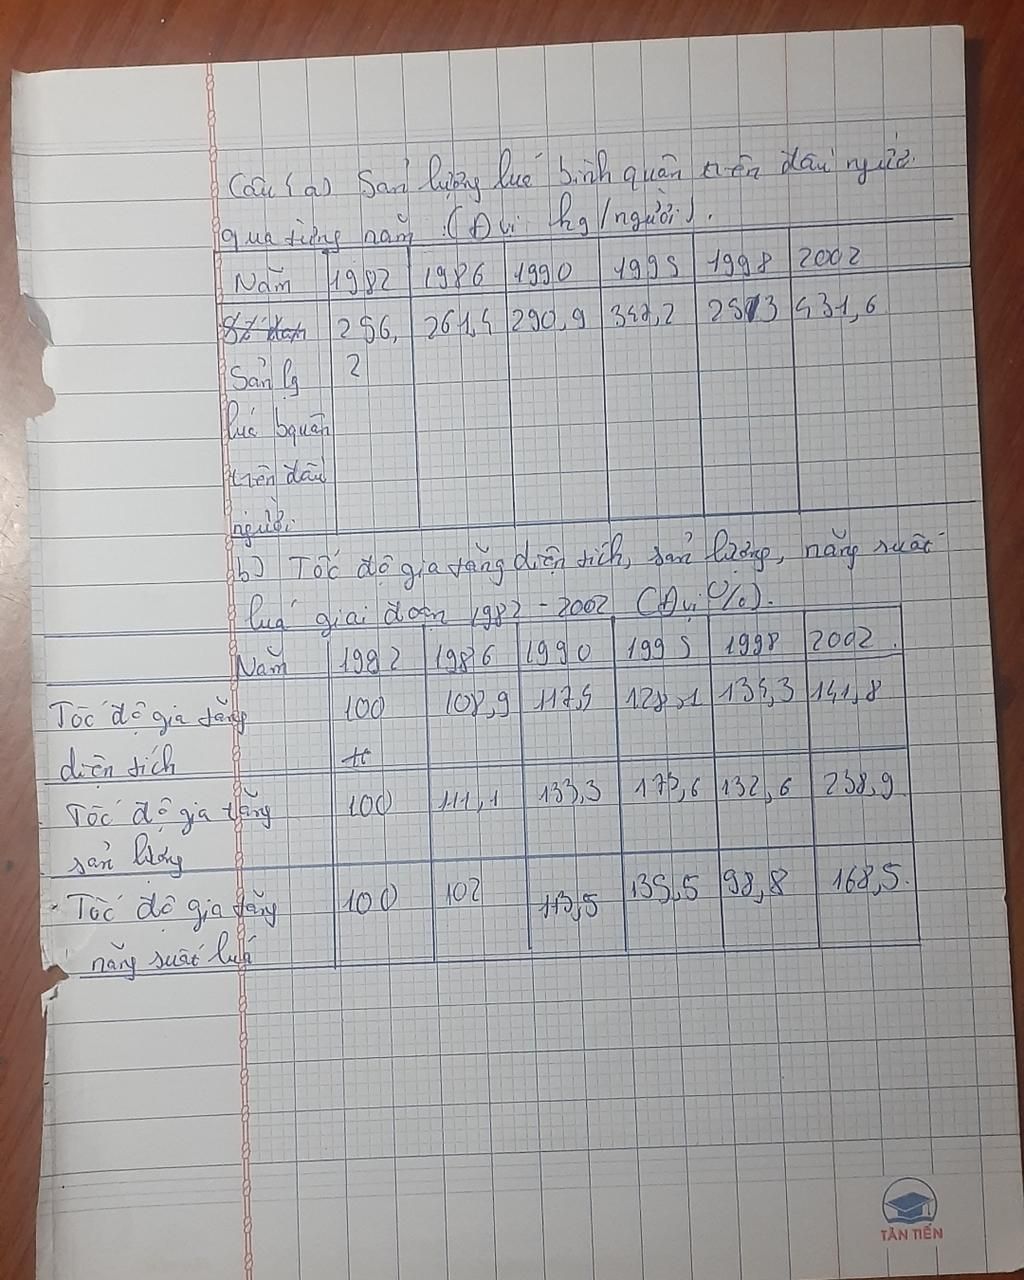 Câu 4 a) Sản lượng lúa bình quân trên đầu người
qua từng năm (Đ vị: kg/người).
Năm 1982 1986 1990 1995 1998 2002
256,2 261,4 290,9 342,2 431,6
Sản lg
lúa bquân
trên đầu
người
b) Tốc độ gia tăng diện tích, sản lượng, năng suất
luá giai đoạn 1982 - 2002 (Đ vị %).
Năm 1982 1986 1990 1995 1998 2002
Tốc độ gia tăng 100 108,9 117,5 128,1 134,3 141,8
diện tích
Tốc độ gia tăng 100 111,1 133,3 173,6 132,6 238,9
sản lượng
- Tốc độ gia tăng 100 102 113,5 135,5 98,8 168,5.
năng suất luá
TÂN TIẾN